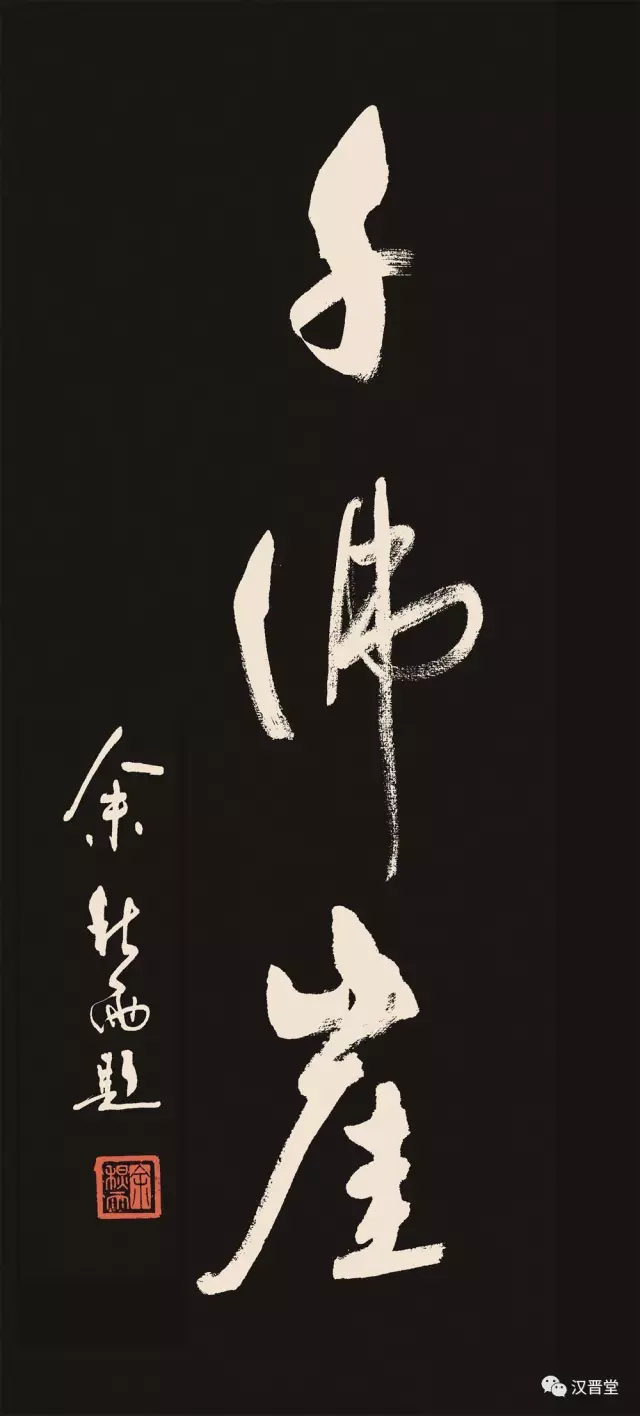 千佛崖
余秋雨题
余秋雨
汉晋堂